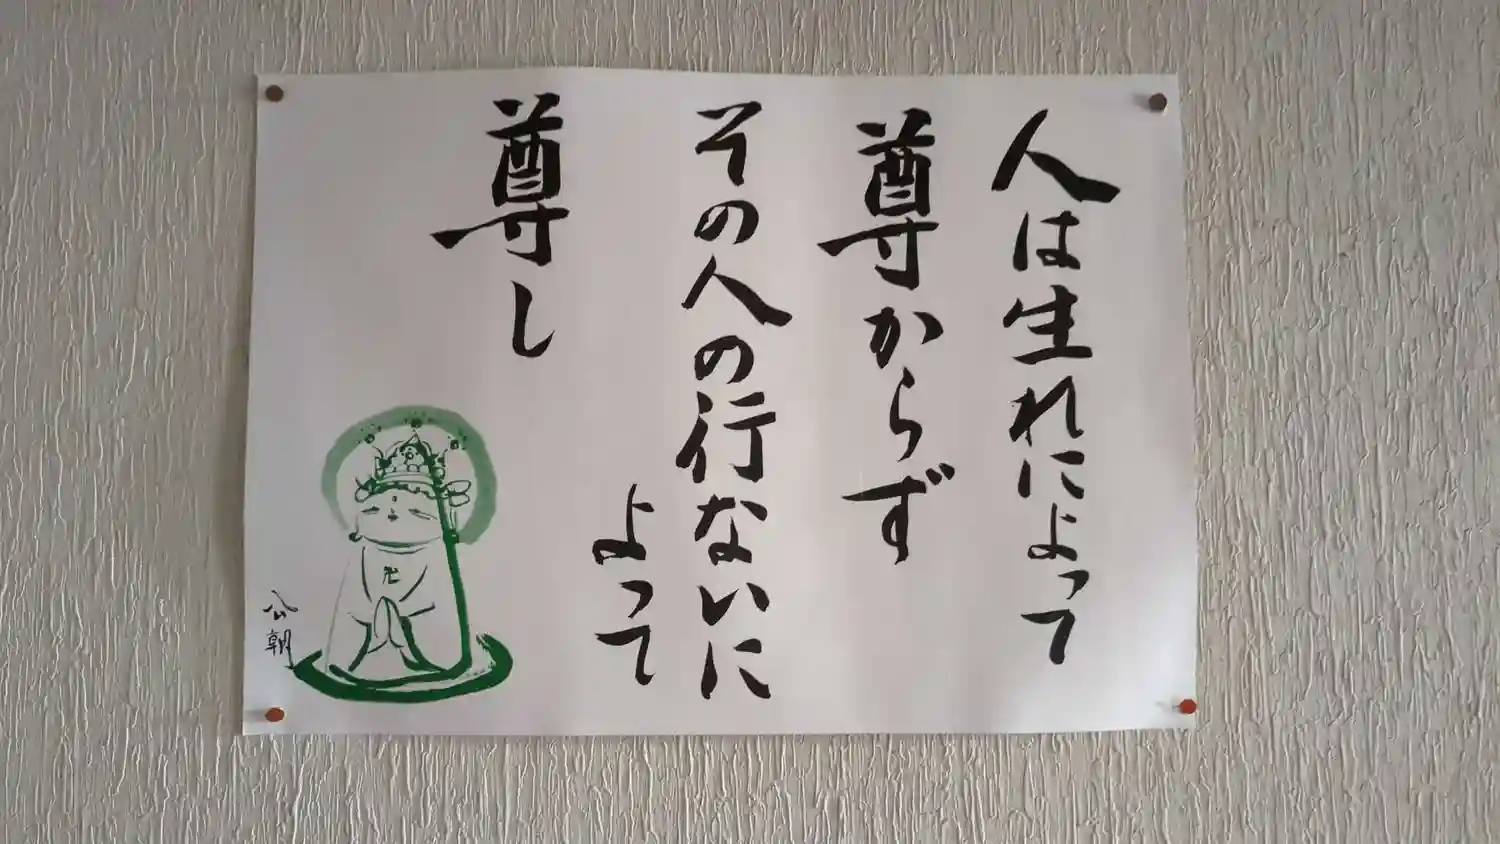 人は生れによって
尊からず
その人の行ないに
よって
尊し
卍
公朝